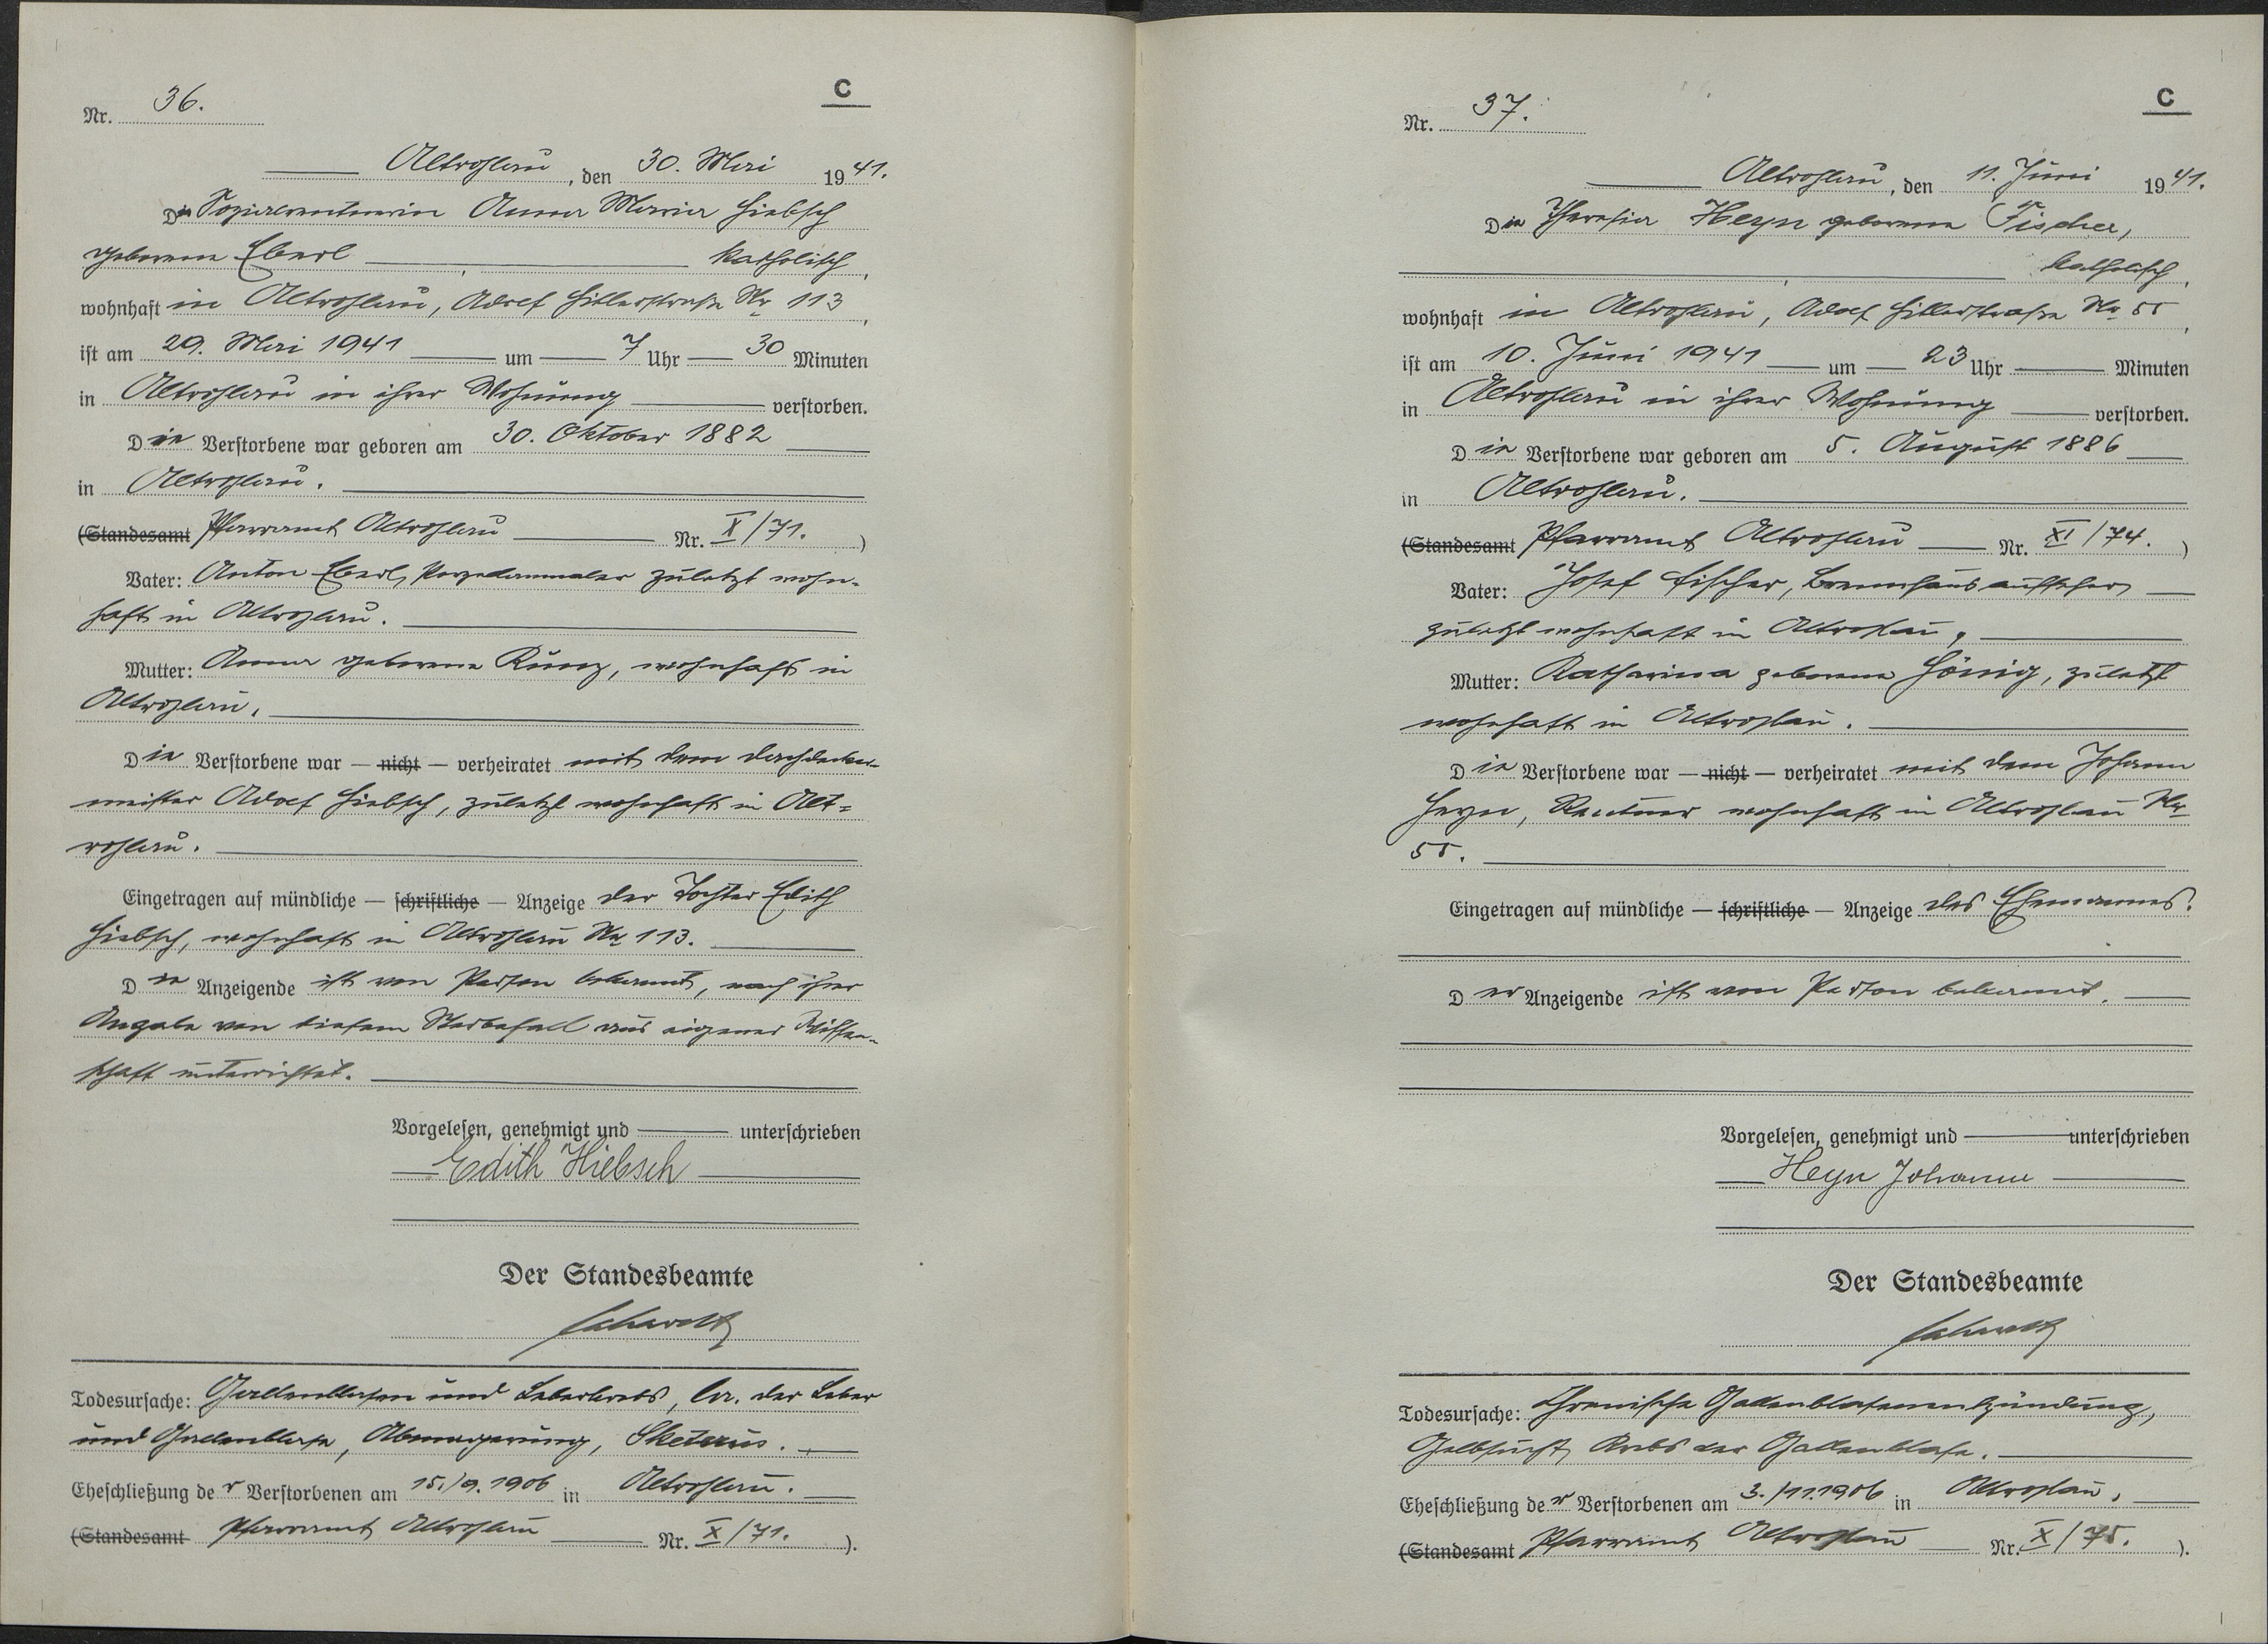 C
Nr. 36.
Altrohlau, den 30. Mai 1941.
Die Sozialrentnerin Anna Maria Hiebsch
geborene Eberl, katholisch,
wohnhaft in Altrohlau, Adolf Hitlerstraße Nr 113,
ist am 29. Mai 1941 um 7 Uhr 30 Minuten
in Altrohlau in ihrer Wohnung verstorben.
Die Verstorbene war geboren am 30. Oktober 1882
in Altrohlau.
(Standesamt Pfarramt Altrohlau Nr. X/71.)
Vater: Anton Eberl, Porzellanmaler zuletzt wohn-
haft in Altrohlau.
Mutter: Anna geborene Kunz, wohnhaft in
Altrohlau.
Die Verstorbene war — nicht — verheiratet mit dem Dachdecker-
meister Adolf Hiebsch, zuletzt wohnhaft in Alt=
rohlau.
Eingetragen auf mündliche — schriftliche — Anzeige der Tochter Edith
Hiebsch, wohnhaft in Altrohlau Nr 113.
Die Anzeigende ist von Person bekannt, nach ihrer
Angabe von diesem Sterbefall aus eigener Wissen-
schaft unterrichtet.
Vorgelesen, genehmigt und unterschrieben
Edith Hiebsch
Der Standesbeamte
Todesursache: Gallenblasen und Leberkrebs, Ca. der Leber
und Gallenblase, Abmagerung, Ikterus.
Eheschließung der Verstorbenen am 15./9.1906 in Altrohlau.
(Standesamt Pfarramt Altrohlau Nr. X/71.).
C
Nr. 37.
Altrohlau, den 11. Juni 1941.
Die Theresia Heyn geborene Fischer,
katholisch,
wohnhaft in Altrohlau, Adolf Hitlerstraße Nr 55,
ist am 10. Juni 1941 um 23 Uhr Minuten
in Altrohlau in ihrer Wohnung verstorben.
Die Verstorbene war geboren am 5. August 1886
in Altrohlau.
(Standesamt Pfarramt Altrohlau Nr. XI/74.)
Vater: Josef Fischer, Brennhausaufseher
zuletzt wohnhaft in Altrohlau,
Mutter: Katharina geborene Hönig, zuletzt
wohnhaft in Altrohlau.
Die Verstorbene war — nicht — verheiratet mit dem Johann
Heyn, Rentner wohnhaft in Altrohlau Nr
55.
Eingetragen auf mündliche — schriftliche — Anzeige des Ehemannes.
Der Anzeigende ist von Person bekannt.
Vorgelesen, genehmigt und unterschrieben
Heyn Johann
Der Standesbeamte
Todesursache: Chronische Gallenblasenentzündung,
Gelbsucht, Krebs der Gallenblase.
Eheschließung der Verstorbenen am 3./11.1906 in Altrohlau.
(Standesamt Pfarramt Altrohlau Nr. X/75.).